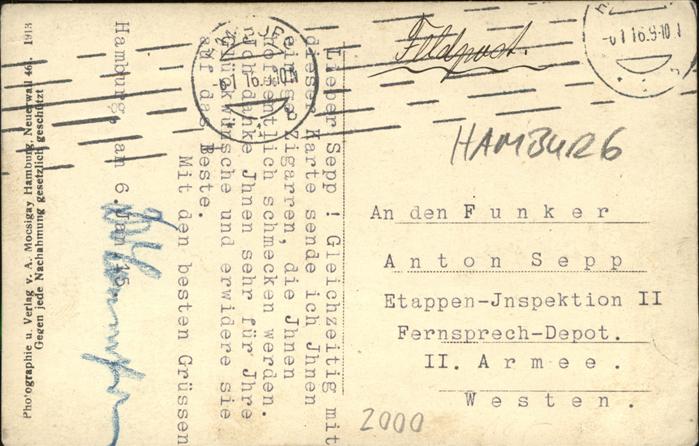 Photographie u. Verlag v. A. Mocsigay Hamburg, Neuerwall 46. 1913
Gegen jede Nachahmung gesetzlich geschützt
Hamburg, am 6.Jan 15
Lieber Sepp ! Gleichzeitig mit
dieser Karte sende ich Jhnen
einige Zigarren, die Jhnen
hoffentlich schmecken werden.
Jch danke Jhnen sehr für Jhre
Glückwünsche und erwidere sie
auf das Beste.
Mit den besten Grüssen
Feldpost.
-6.1.16.9-10
HAMBURG
An den Funker
Anton Sepp
Etappen-Jnspektion II
Fernsprech-Depot.
II. Armee.
Westen.
2000